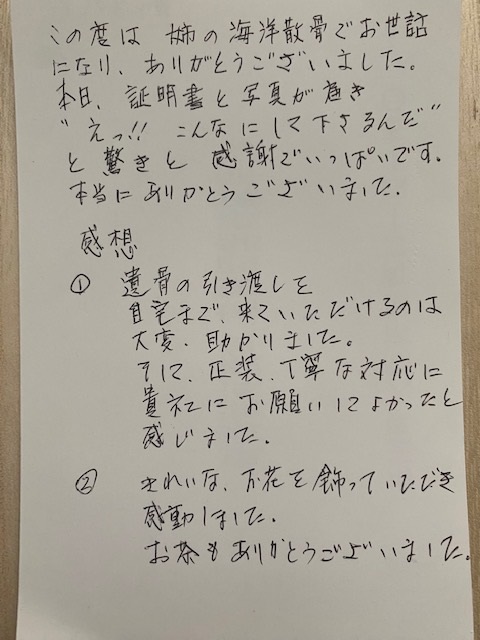 この度は 姉の海洋散骨でお世話
になり、ありがとうございました。
本日、証明書と写真が届き
"えっ!! こんなにして下さるんだ"
と驚きと 感謝でいっぱいです。
本当にありがとうございました。
感想
① 遺骨の引き渡しを
自宅まで、来ていただけるのは
大変、助かりました。
そして、正装、丁寧な対応に
貴社にお願いしてよかったと
感じました。
② きれいな、お花を飾っていただき
感動しました。
お茶もありがとうございました。